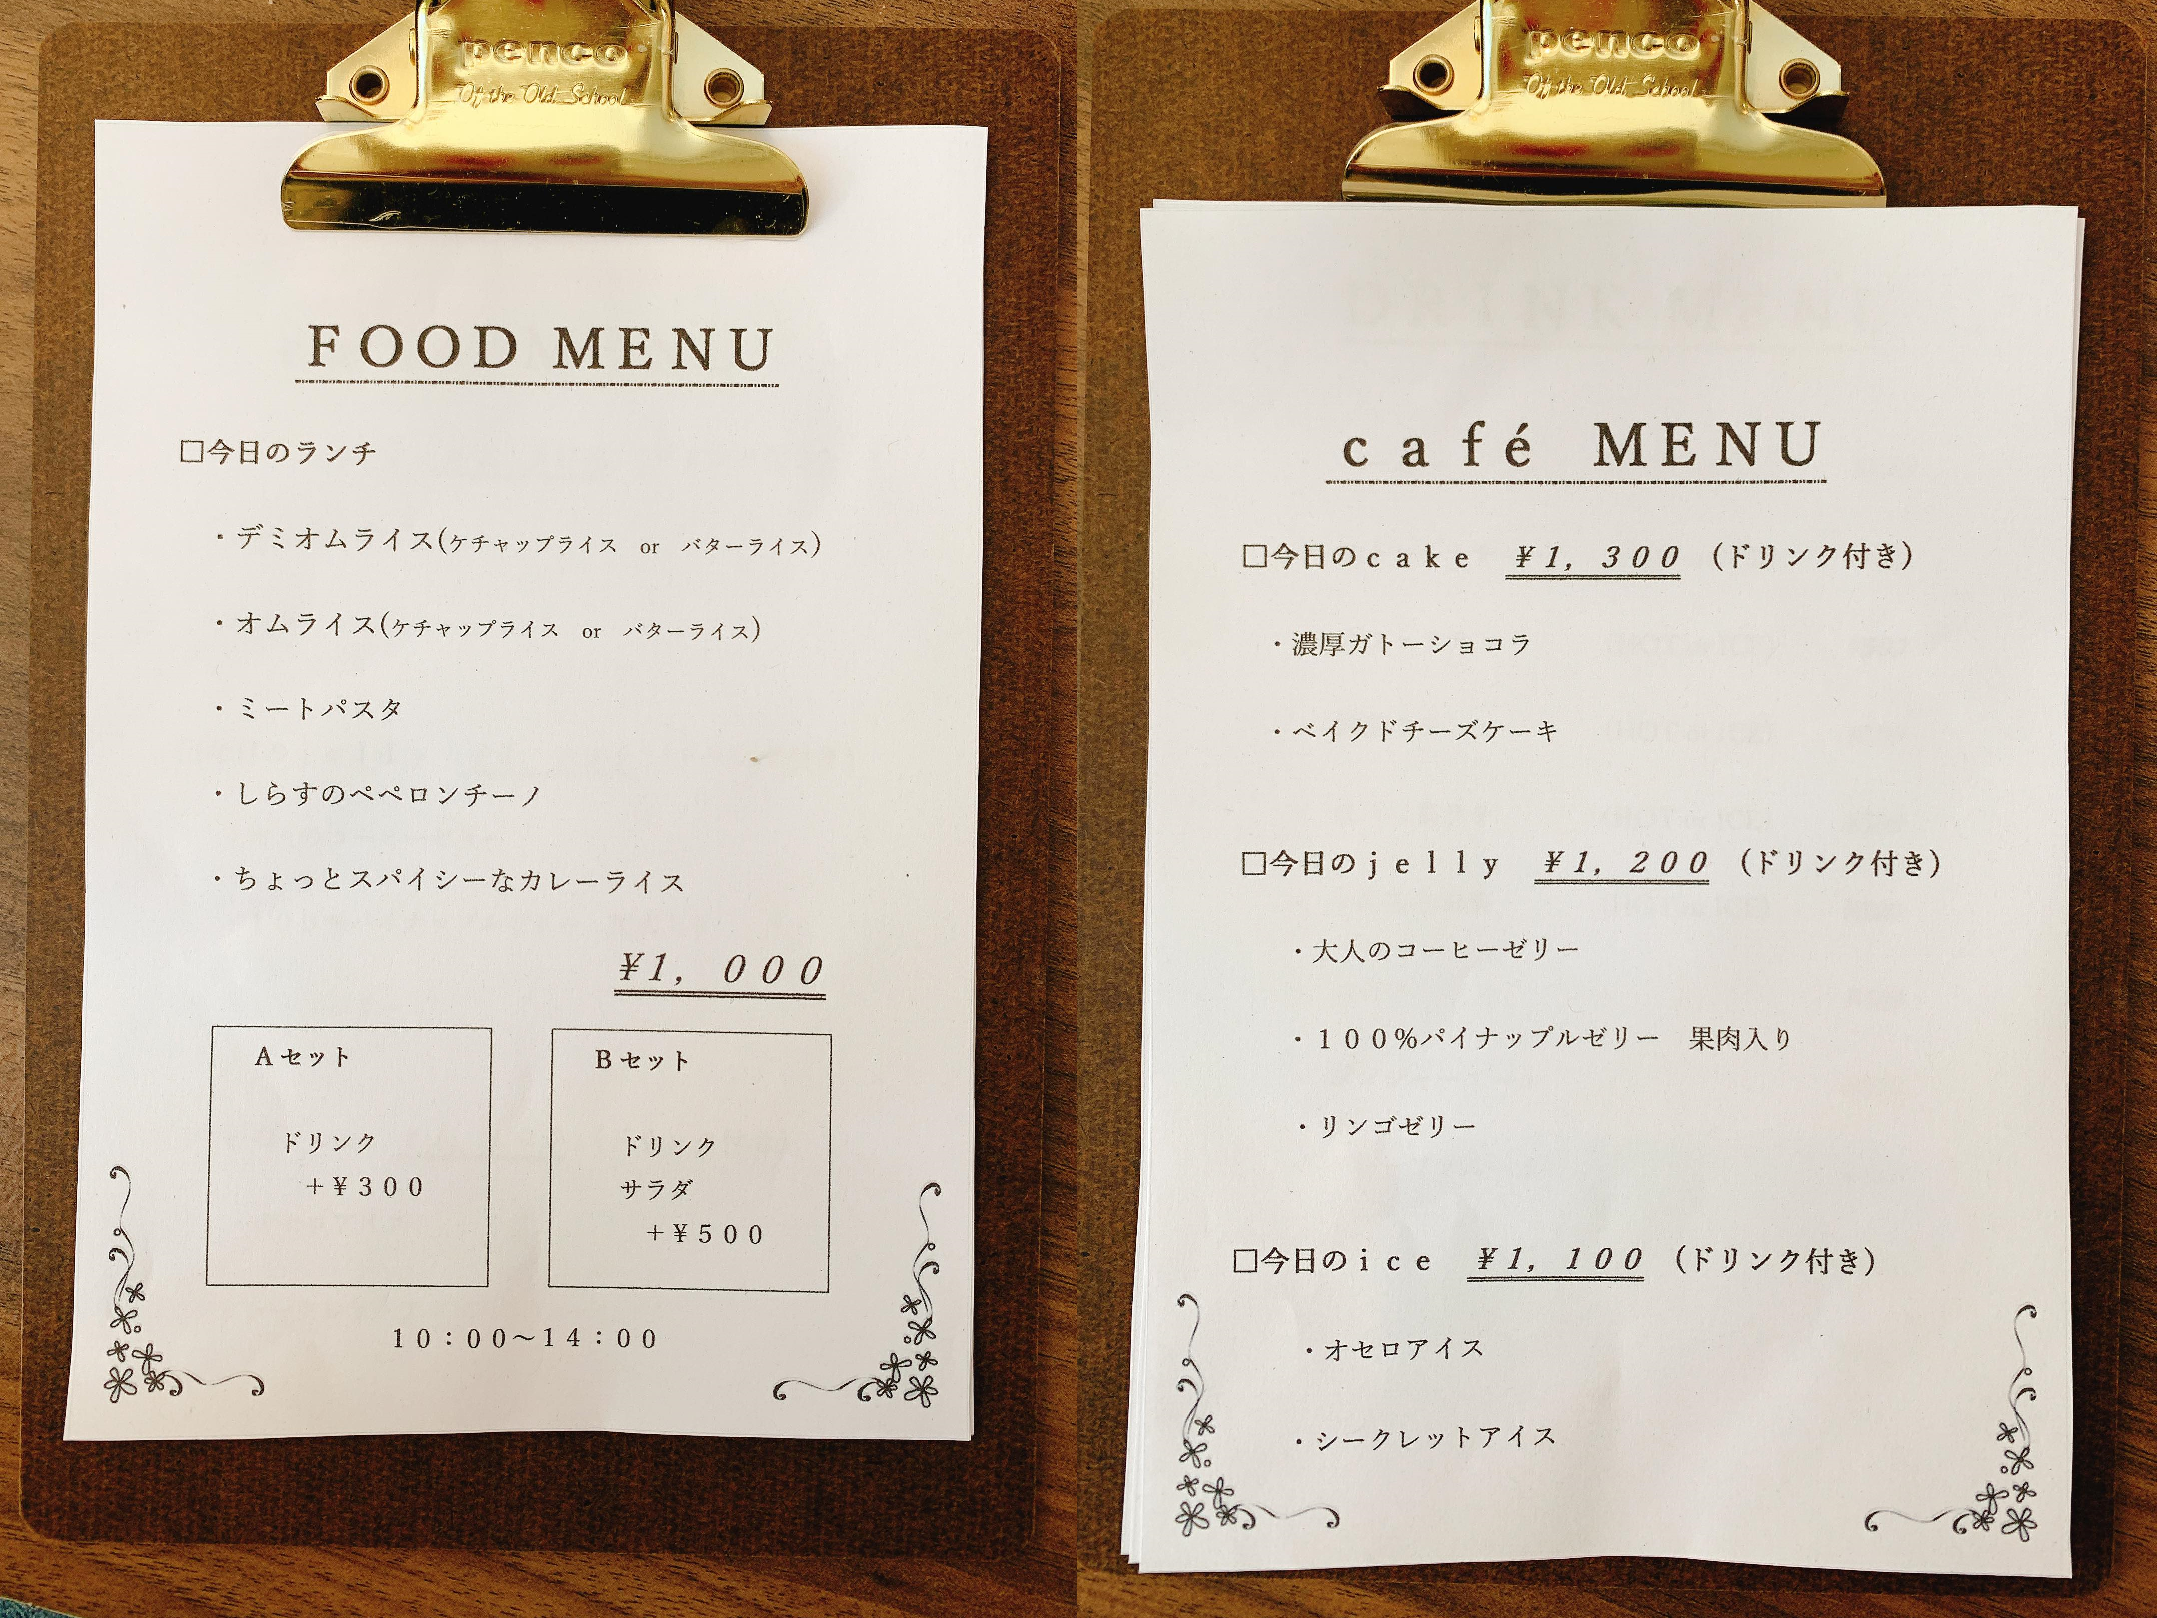 penco
Of the Old School
FOOD MENU
□今日のランチ
・デミオムライス(ケチャップライス or バターライス)
・オムライス(ケチャップライス or バターライス)
・ミートパスタ
・しらすのペペロンチーノ
・ちょっとスパイシーなカレーライス
¥1, 000
Aセット
ドリンク
+¥300
Bセット
ドリンク
サラダ
+¥500
10:00～14:00
penco
Of the Old School
café MENU
□今日のcake ¥1, 300 (ドリンク付き)
・濃厚ガトーショコラ
・ベイクドチーズケーキ
□今日のjelly ¥1, 200 (ドリンク付き)
・大人のコーヒーゼリー
・100%パイナップルゼリー 果肉入り
・リンゴゼリー
□今日のice ¥1, 100 (ドリンク付き)
・オセロアイス
・シークレットアイス